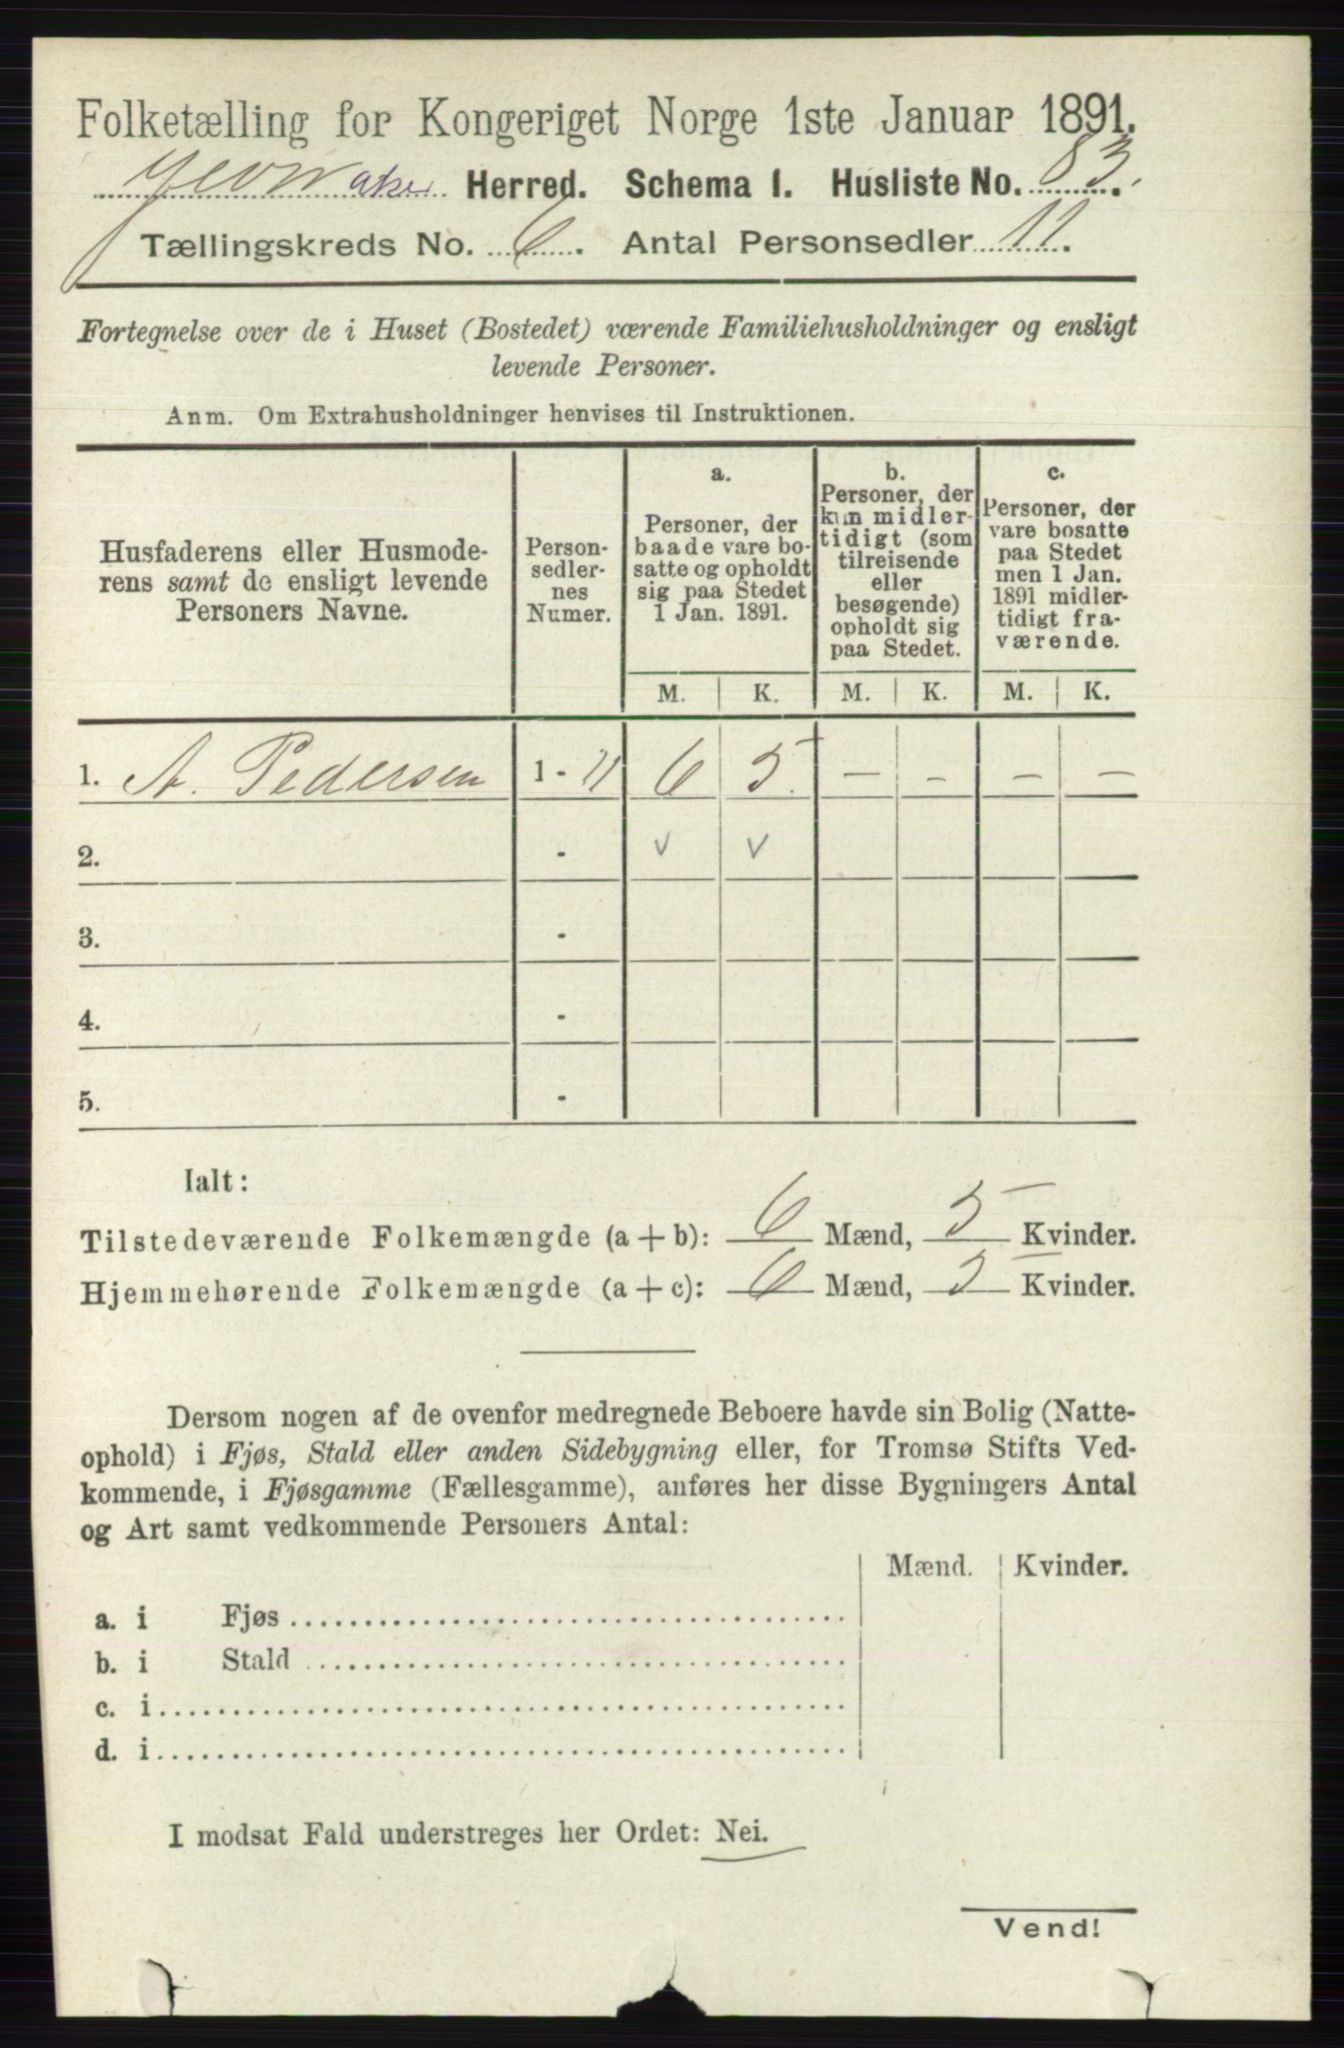 Folketælling for Kongeriget Norge 1ste Januar 1891.
aker Herred. Schema 1. Husliste No. 83.
Tællingskreds No. 6. Antal Personsedler 11.
Fortegnelse over de i Huset (Bostedet) værende Familiehusholdninger og ensligt
levende Personer.
Anm. Om Extrahusholdninger henvises til Instruktionen.
Husfaderens eller Husmode-
rens samt de ensligt levende
Personers Navne.
Person-
sedler-
nes
Numer.
a.
Personer, der
baade vare bo-
satte og opholdt
sig paa Stedet
1 Jan. 1891.
b.
Personer, der
kun midler-
tidigt (som
tilreisende
eller
besøgende)
opholdt sig
paa Stedet.
c.
Personer, der
vare bosatte
paa Stedet
men 1 Jan.
1891 midler-
tidigt fra-
værende.
M. K. M. K. M. K.
1. A. Pedersen 1 - 11 6 5 — - — —
2. - v v
3. -
4. -
5. -
Ialt:
Tilstedeværende Folkemængde (a + b): 6 Mænd, 5 Kvinder.
Hjemmehørende Folkemængde (a + c): 6 Mænd, 5 Kvinder.
Dersom nogen af de ovenfor medregnede Beboere havde sin Bolig (Natte-
ophold) i Fjøs, Stald eller anden Sidebygning eller, for Tromsø Stifts Ved-
kommende, i Fjøsgamme (Fællesgamme), anføres her disse Bygningers Antal
og Art samt vedkommende Personers Antal:
Mænd. Kvinder.
a. i Fjøs
b. i Stald
c. i
d. i
I modsat Fald understreges her Ordet: Nei.
Vend!